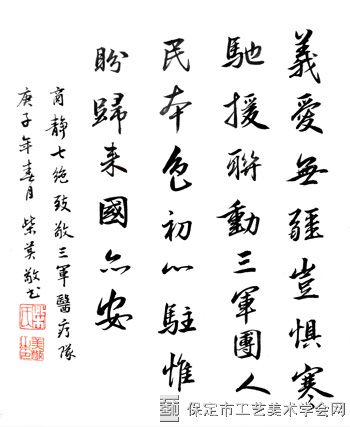 義愛無疆豈惧寒
馳援聯動三軍團人
民本色初心駐惟
盼歸来國亦安
商静七绝致敬三軍醫疗隊
庚子年春月柴英敬书
保定市工艺美术学会网